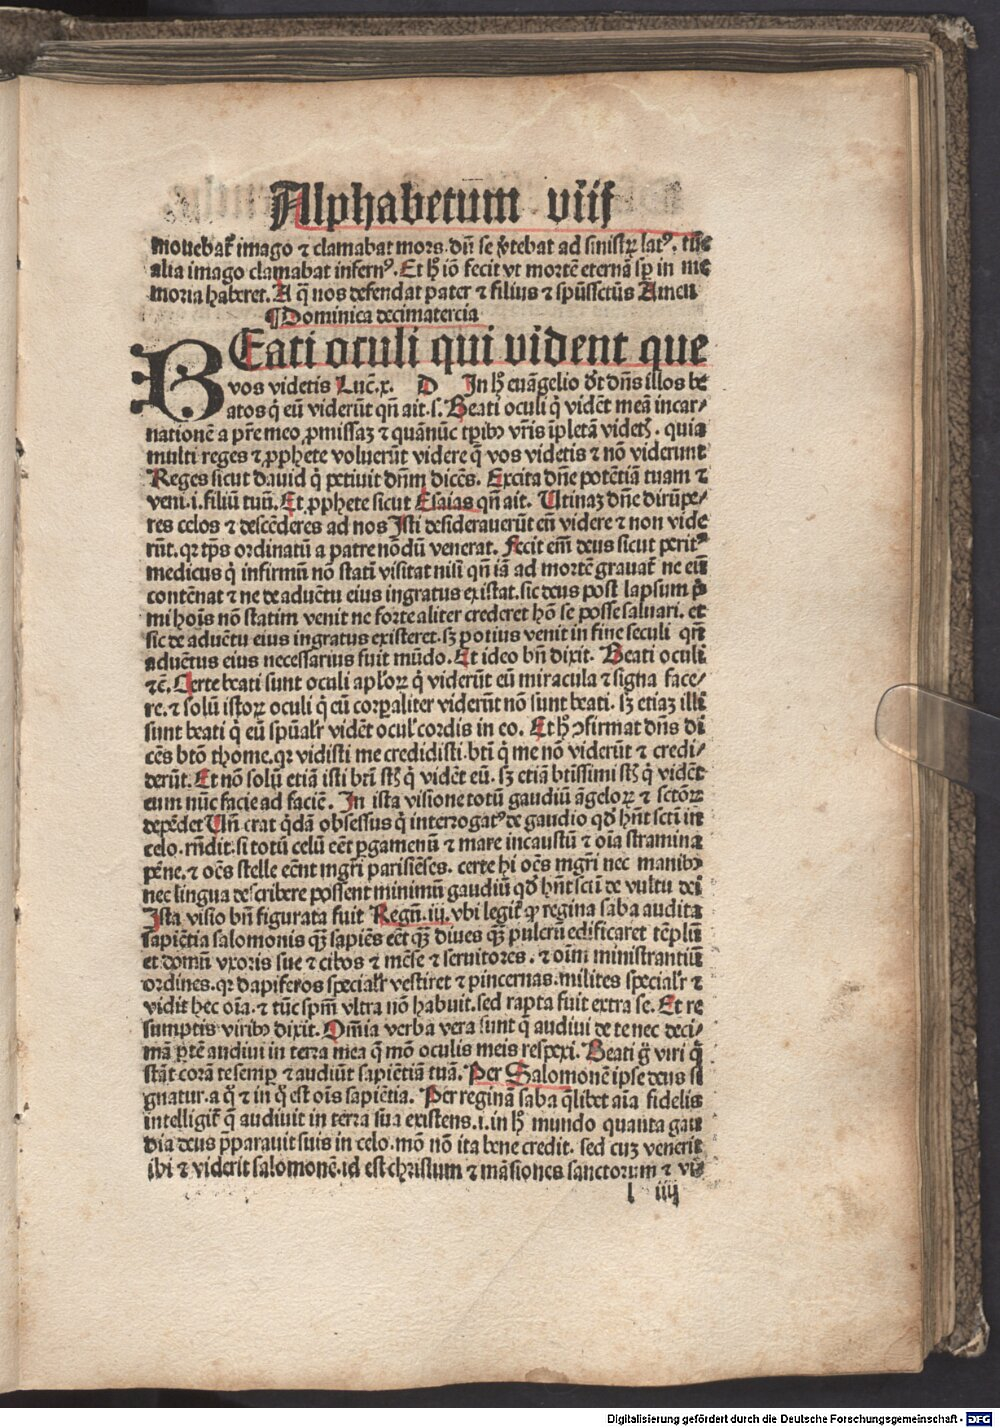 Alphabetum viij
mouebat᷑ imago ⁊ clamabat mors. dū se v̄tebat ad sinistr̄ latꝰ. tūc
alia imago clamabat infernꝰ. Et h̄ iō fecit vt mortē eternā sp̄ in me
moria haberet. A q̄ nos defendat pater ⁊ filius ⁊ spūssctūs Amen
¶ Dominica decimatercia
BEati oculi qui vident que
vos videtis Luc̄. x. D In h̄ euāgelio dr̄t dn̄s illos be
atos q̇ eū viderūt qn̄ ait. s. Beati oculi q̇ vidēt meā incar⸗
nationē a pr̄e meo ꝓmissaꝫ ⁊ quā nūc tp̄ibꝫ vr̄is īpletā videtꝭ. quia
multi reges ⁊ ꝓphete voluerūt videre q̄ vos videtis ⁊ nō viderunt
Reges sicut dauid q̇ petiuit dn̄m dicēs. Excita dn̄e potētiā tuam ⁊
veni. i. filiū tuū. Et ꝓphete sicut Esaias qn̄ ait. Utinaꝫ dn̄e dirūpe⸗
res celos ⁊ descēderes ad nos Isti desiderauerūt eū videre ⁊ non vide
rūt. qꝛ tp̄s ordinatū a patre nōdū venerat. Fecit em̄ deus sicut peritꝰ
medicus q̇ infirmū nō statī visitat nisi qn̄ iā ad mortē grauat᷑ ne eū
contēnat ⁊ ne de aduētu eius ingratus existat. sic deus post lapsum p̄
mi hoīs nō statim venit ne forte aliter crederet hō se posse saluari. et
sic de aduētu eius ingratus existeret. sꝫ potius venit in fine seculi qn̄
aduētus eius necessarius fuit mūdo. Et ideo bn̄ dixit. Beati oculi
⁊c̄. Certe beati sunt oculi apl'oꝝ q̇ viderūt eū miracula ⁊ signa face⸗
re. ⁊ solū istoꝝ oculi q̇ eū corꝑaliter viderūt nō sunt beati. sꝫ etiaꝫ illi
sunt beati q̇ eū spūal'r vidēt ocul' cordis in eo. Et h̄ ꝯfirmat dn̄s di
cēs btō thome. qꝛ vidisti me credidisti. bt̄i q̇ me nō viderūt ⁊ credi⸗
derūt. Et nō solū etiā isti bt̄i st̄ q̇ vidēt eū. sꝫ etiā bt̄issimi st̄ q̇ vidēt
eum nūc facie ad faciē. In ista visione totū gaudiū āgeloꝝ ⁊ sctōꝝ
depēdet Un̄ erat q̇dā obsessus q̇ interrogatꝰ de gaudio qd̄ hn̄t scti in
celo. rn̄dit. si totū celū eēt ꝑgamenū ⁊ mare incaustū ⁊ oīa stramina
pēne. ⁊ oēs stelle eēnt mgr̄i parisiēses. certe hi oēs mgr̄i nec manibꝫ
nec lingua describere possent minimū gaudiū qd̄ hn̄t scti de vultu dei
Ista visio bn̄ figurata fuit Regū. iij. vbi legit᷑ ꝙ regina saba audita
sapiētia salomonis qꝫ̄ sapiēs eēt qꝫ̄ diues qꝫ̄ pulcrū edificaret tēplū
et domū vxoris sue ⁊ cibos ⁊ mēse ⁊ seruitores. ⁊ oīm ministrantiū
ordines. qꝛ dapiferos special'r vestiret ⁊ pincernas. milites special'r ⁊
vidit hec oīa. ⁊ tūc spm̄ vltra nō habuit. sed rapta fuit extra se. Et re
sumptis viribꝫ dixit. Om̄ia verba vera sunt q̄ audiui de te nec deci⸗
mā ꝑtē audiui in terra mea q̄ mō oculis meis respexi. Beati g̊ viri q̇
stāt corā te semꝑ ⁊ audiūt sapiētiā tuā. Per Salomonē ipse deus si
gnatur. a q̊ ⁊ in q̊ est oīs sapiētia. Per reginā saba q̄libet aīa fidelis
intelligit᷑ q̄ audiuit in terra sua existens. i. in h̄ mundo quanta gau
dia deus p̄parauit suis in celo. mō nō ita bene credit. sed cuꝫ venerit
ibi ⁊ viderit salomonē. id est christum ⁊ māsiones sanctorum ⁊ vi⸗
l iiij
Digitalisierung gefördert durch die Deutsche Forschungsgemeinschaft - DFG